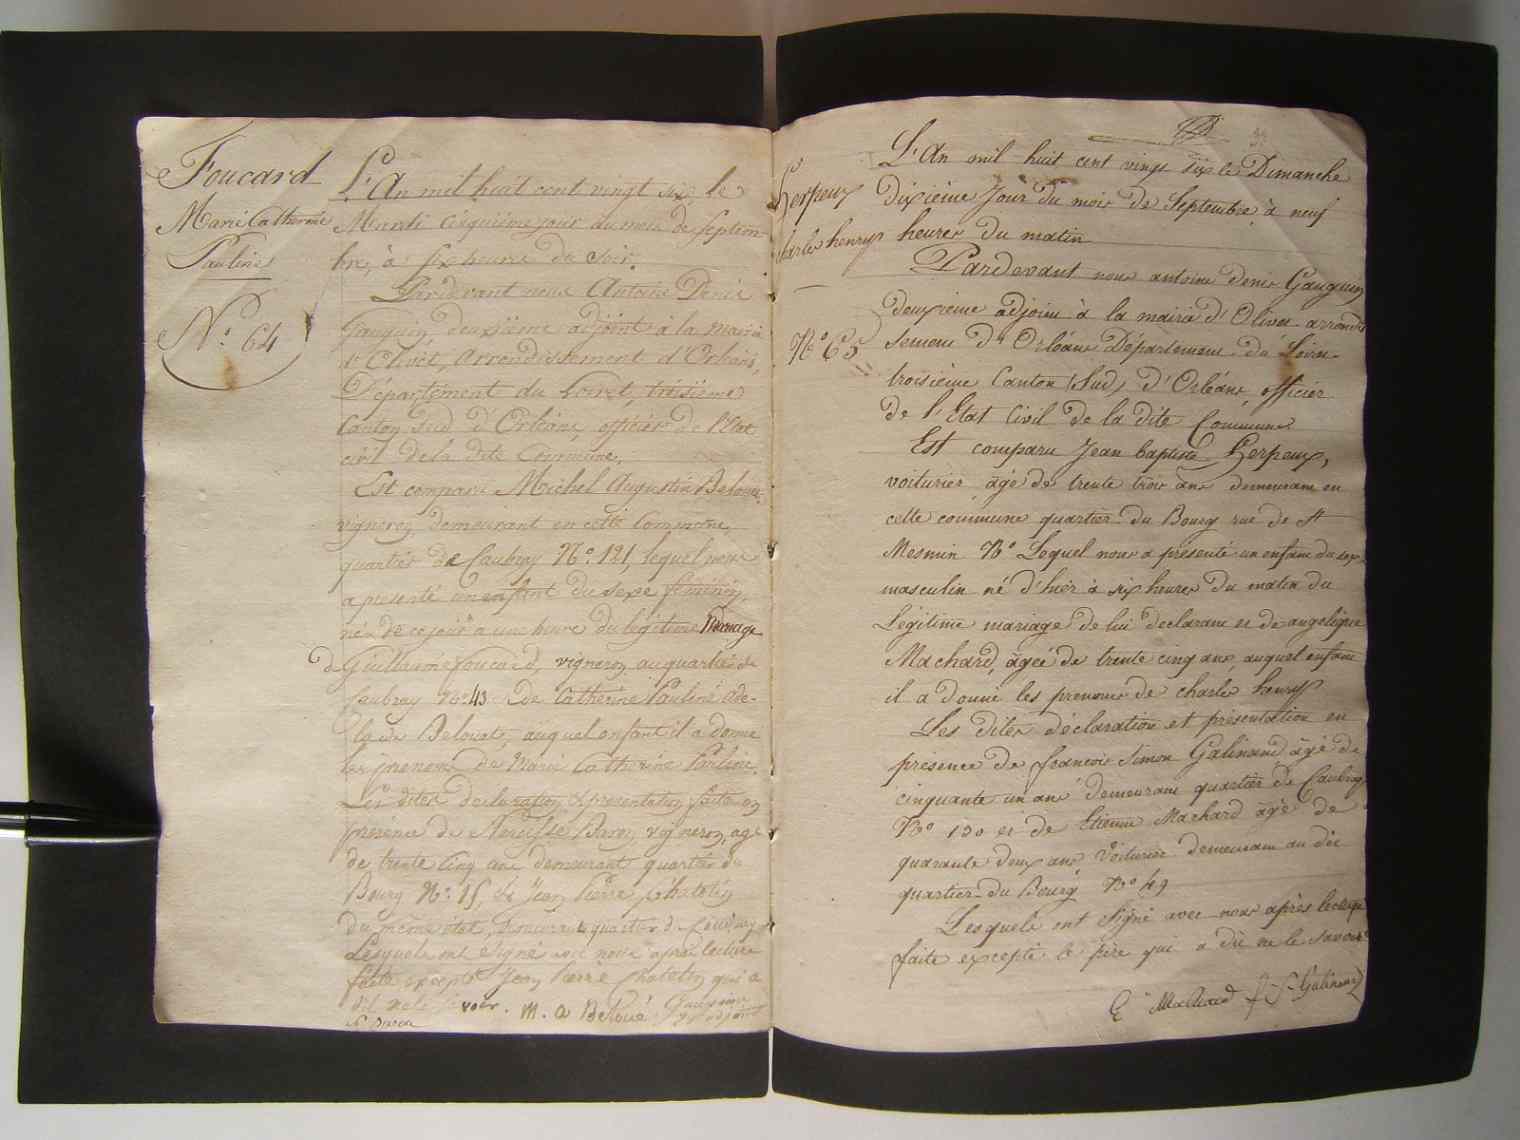 Foucard
Marie Catherine
Pauline
N.º 64
L'An mil huit cent vingt six, le
Mardi cinquième jour du mois de Septem-
bre, à six heures du soir.
Pardevant nous Antoine Denis
Gauguin, deuxième adjoint à la mairie
d'Olivet, arrondissement d'Orléans,
Département du Loiret, troisième
Canton Sud d'Orléans, officier de l'Etat
civil de la dite Commune,
Est comparu Michel Augustin Beloué
vigneron demeurant en cette Commune,
quartier de Caubray N.º 121, lequel nous
a présenté un enfant du sexe féminin,
née de ce jour à une heure du légitime mariage
de Guillaume Foucard, vigneron au quartier de
Caubray N.º 43 de Catherine Pauline Ade-
laide Beloué, auquel enfant il a donné
les prénoms de Marie Catherine Pauline.
Les dites declaration & presentation faites en
presence de Narcisse Baron, vigneron, agé
de trente cinq ans demeurant quartier du
Bourg N.º 15, & Jean Pierre Chatelin
du même état, demeurant quartier de Caubray
Lesquels ont signé avec nous après lecture
faite excepté Jean Pierre Chatelin qui a
dit ne le savoir. M. a Beloué Gauguin
N. Baron adjoint
Herpeux
Charles henry
N.º 65
L'An mil huit cent vingt six le Dimanche
dixième Jour du mois de Septembre à neuf
heures du matin
Pardevant nous antoine denis Gauguin
deuxième adjoint à la mairie d'Olivet arrondis
sement d'Orléans Département du Loiret
troisième Canton (Sud) d'Orléans, officier
de l'Etat Civil de la dite Commune
Est comparu Jean baptiste Herpeux,
voiturier âgé de trente trois ans demeurant en
cette commune quartier du Bourg rue de St
Mesmin N.º Lequel nous a présenté un enfant du sexe
masculin né d'hier à six heures du matin du
Légitime mariage de lui déclarant et de angelique
Machard, âgée de trente cinq ans, auquel enfant
il a donné les prenoms de charles henry
Les dites déclaration et présentation en
présence de françois Simon Galinand âgé de
cinquante un ans demeurant quartier de Caubray
N.º 130 et de Etienne Machard âgé de
quarante deux ans Voiturier demeurant au dit
quartier du Bourg N.º 49
Lesquels ont Signé avec nous après lecture
faite excepté le père qui a dit ne le savoir
E Machard f. S. Galinand